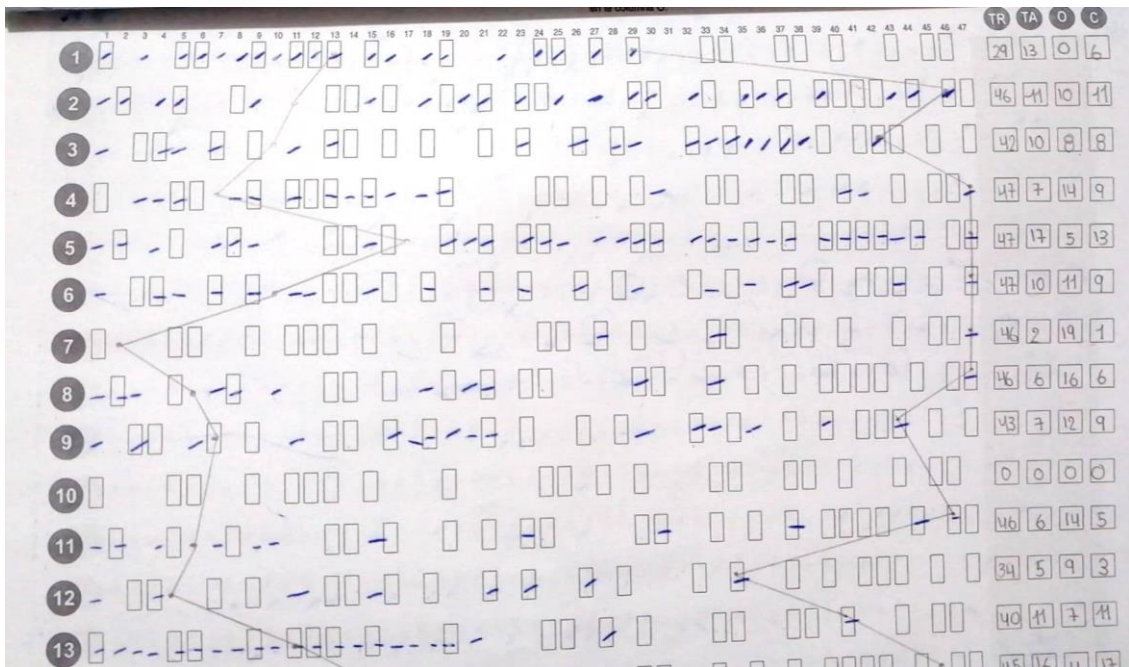 en la columna C.
1 2 3 4 5 6 7 8 9 10 11 12 13 14 15 16 17 18 19 20 21 22 23 24 25 26 27 28 29 30 31 32 33 34 35 36 37 38 39 40 41 42 43 44 45 46 47 TR TA O C
1 29 13 0 6
2 46 11 10 11
3 42 10 8 8
4 47 7 14 9
5 47 17 5 13
6 47 10 11 9
7 46 2 19 1
8 46 6 16 6
9 43 7 12 9
10 0 0 0 0
11 46 6 14 5
12 34 5 9 3
13 40 11 7 11